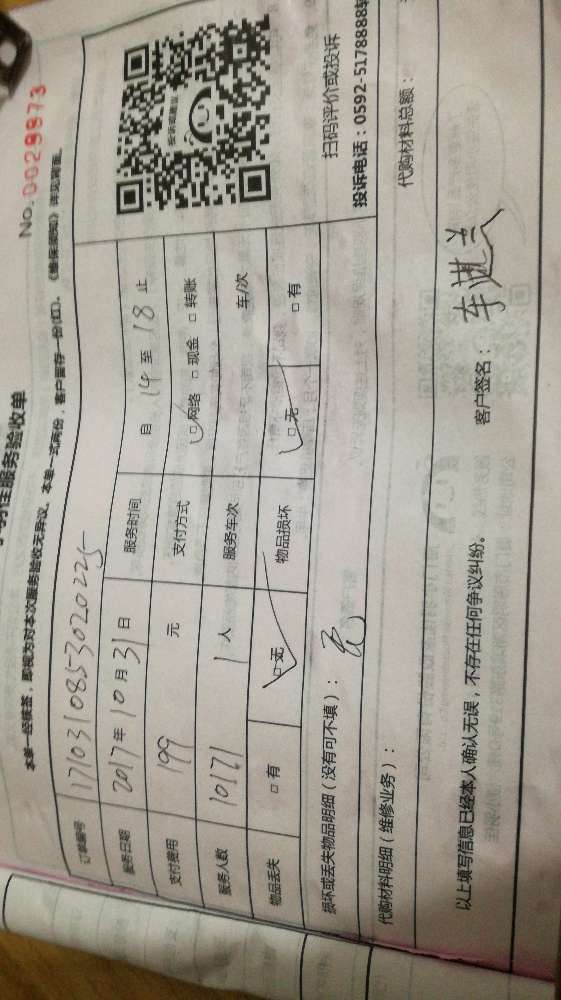 服务验收单
No. 0029973
本单一经核签，即视为对本次服务验收无异议。本单一式两份，客户留存一份(红)。《维保须知》详见背面。
订单编号 1710310853020225
服务日期 2017年10月31日 服务时间 自 14 至 18 止
支付费用 199 元 支付方式 □网络 □现金 □转账
服务人数 10171 1人 服务车次 车/次
物品丢失 □有 □无 物品损坏 □无 □有
扫码评价或投诉
投诉电话：0592-5178888转
损坏或丢失物品明细（没有可不填）：
代购材料明细（维修业务）： 代购材料总额：
以上填写信息已经本人确认无误，不存在任何争议纠纷。 客户签名：